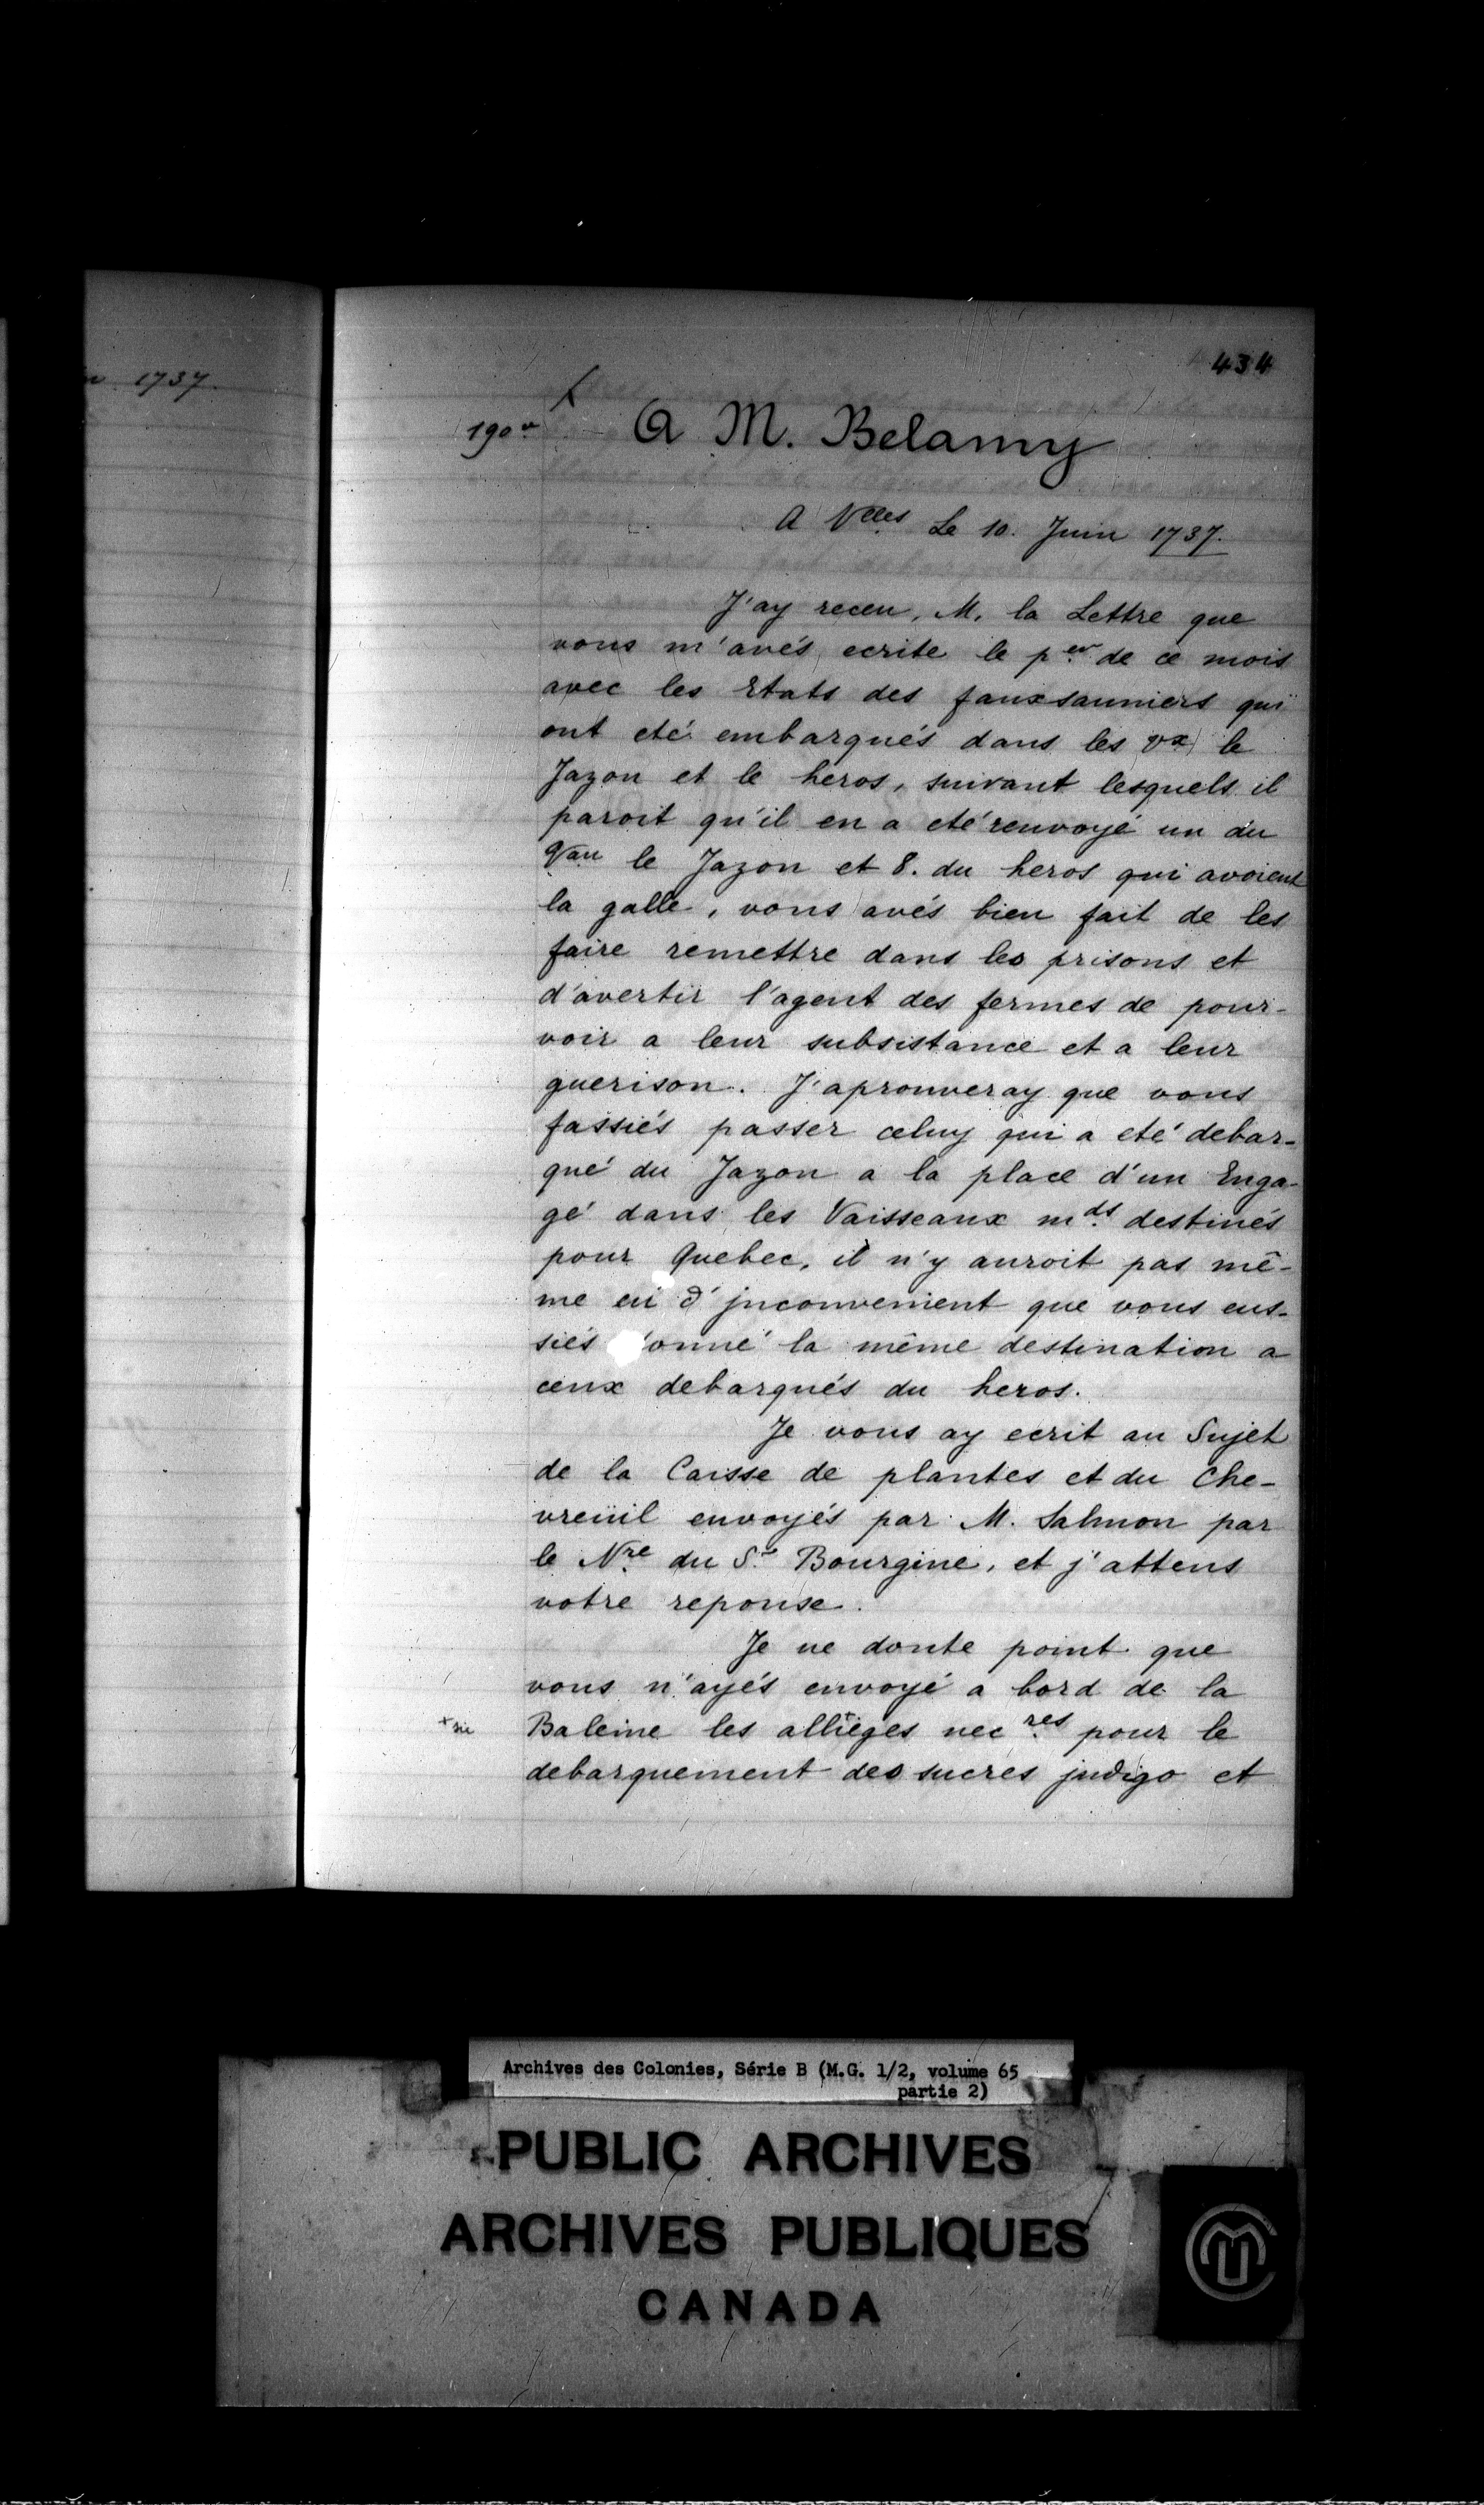 n 1737.
434
190 v.
A M. Belamy
A Vlles Le 10. Juin 1737.
J'ay receu, M. la Lettre que
vous m'avés ecrite le p.er de ce mois
avec les Etats des fauxsauniers qui
ont eté embarqués dans les vx le
Jazon et le heros, suivant lesquels il
paroit qu'il en a eté renvoyé un du
Vau le Jazon et 8. du heros qui avoient
la galle, vous avés bien fait de les
faire remettre dans les prisons et
d'avertir l'agent des fermes de pour-
voir a leur subsistance et a leur
guerison. J'aprouveray que vous
fassiés passer celuy qui a eté debar-
qué du Jazon a la place d'un Enga-
gé dans les Vaisseaux m.ds destinés
pour Quebec, il n'y auroit pas mê-
me eu d'jnconvenient que vous eus-
siés onné la même destination a
ceux debarqués du heros.
Je vous ay ecrit au Sujet
de la Caisse de plantes et du Che-
vreüil envoyés par M. Salmon par
le N.re du S.r Bourgine, et j'attens
votre reponse.
Je ne doute point que
vous n'ayés envoyé a bord de la
+ sic
Baleine les allieges nec.res pour le
debarquement des sucres jndigo et
Archives des Colonies, Série B (M.G. 1/2, volume 65
partie 2)
PUBLIC ARCHIVES
ARCHIVES PUBLIQUES
CANADA